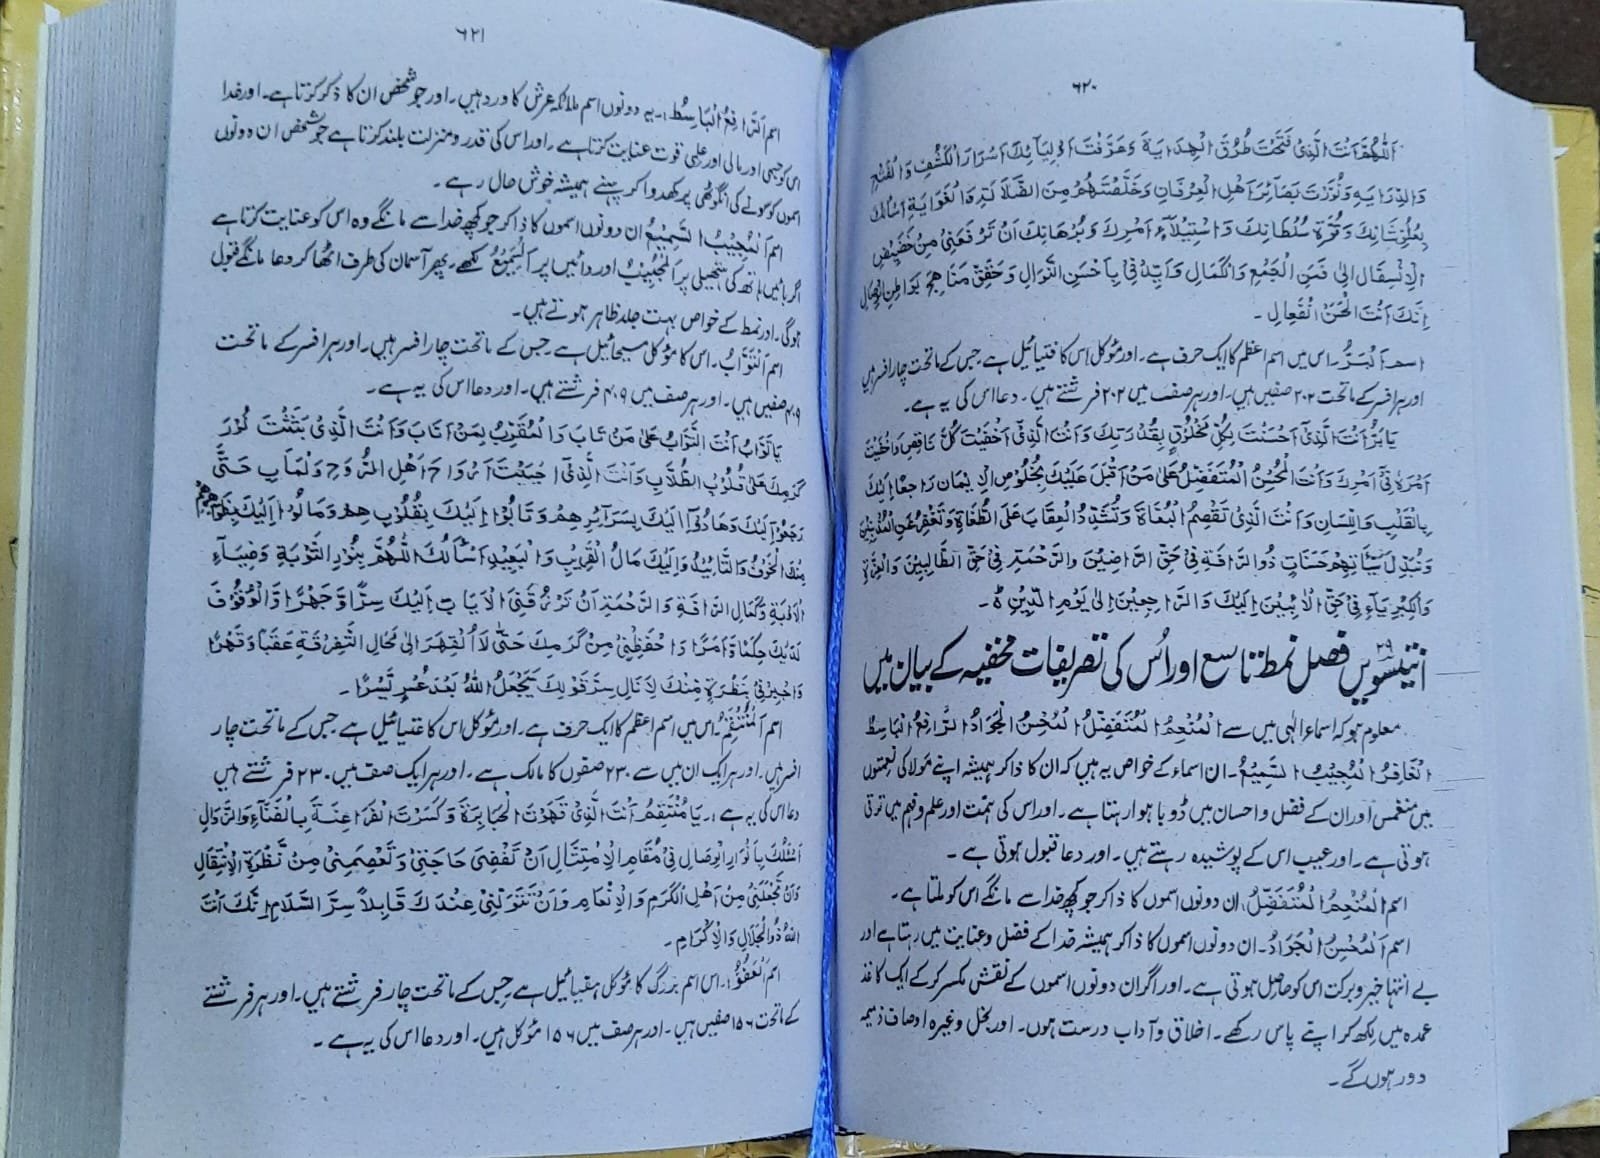 ۶۲۰
اَللّٰهُمَّ اَنْتَ الَّذِیْ فَتَحْتَ طُرُقَ الْهِدَایَةِ وَعَرَّفْتَ اَوْلِیَآئِكَ اَسْرَارَ الْكَشْفِ وَ
وَالدِّرَایَةِ وَنَوَّرْتَ بَصَائِرَ اَهْلِ الْعِرْفَانِ وَخَلَّصْتَهُمْ مِنَ الضَّلَالَةِ وَالْغَوَایَةِ اَسْاَلُكَ
بِعُلُوِّ شَانِكَ وَقُوَّةِ سُلْطَانِكَ وَاسْتِیْلَآءِ اَمْرِكَ وَبُرْهَانِكَ اَنْ تَرْفَعَنِیْ مِنْ حَضِیْضِ
الْاِنْسِفَالِ اِلٰی الْجَمْعِ وَالْكَمَالِ وَاَیِّدْنِیْ بِاَحْسَنِ النَّوَالِ وَحَقِّقْ مَنَاهِجَ بَوَاطِنِ
اِنَّكَ اَنْتَ الْفَعَّالِ ۔
اسم اَلْبَرُّ۔ اس میں اسم اعظم کا ایک حرف ہے۔ اور موکل اس کا ہے جس کے ماتحت چار افسر ہیں
اور ہر افسر کے ماتحت ۲۰۲ صفیں ہیں۔ اور ہر صف میں ۲۰۲ فرشتے ہیں ۔ دعا اس کی یہ ہے۔
یَا بَرُّ اَنْتَ الَّذِیْ اَحْسَنْتَ بِكُلِّ مَخْلُوْقٍ بِقُدْرَتِكَ وَاَنْتَ الَّذِیْ اَخْفَیْتَ كُلَّ نَاقِصٍ
اَمْرَهٗ فِیْ اَمْرِكَ وَاَنْتَ الْمُحْسِنُ الْمُتَفَضِّلُ عَلٰی مَنْ اَقْبَلَ عَلَیْكَ بِخُلُوْصِ الْاِیْمَانِ رَاجِعًا اِلَیْكَ
بِالْقَلْبِ وَاللِّسَانِ وَاَنْتَ الَّذِیْ تَقْصِمُ الْبُغَاةَ وَتُشَدِّدُ الْعِقَابَ عَلَی الطُّغَاةِ وَتَغْفِرُ عَنِ الْمُذْنِبِیْنَ
وَتُبَدِّلُ سَیِّاٰتِهِمْ حَسَنَاتٍ ذُو الرَّافَةِ فِیْ حَقِّ الرَّاضِیْنَ وَالرَّحْمَةِ فِیْ حَقِّ الطَّالِبِیْنَ وَالْعِزَّةِ
وَالْكِبْرِیَآءِ فِیْ حَقِّ الْاٰئِبِیْنَ اِلَیْكَ وَالرَّاجِعِیْنَ اِلٰی یَوْمِ الدِّیْنِ ۝۔
۲۹
انتیسویں فصل نمط تاسع اور اُس کی تصریفات مخفیہ کے بیان میں
معلوم ہو کہ اسماء الٰہی میں سے اَلْمُنْعِمُ الْمُتَفَضِّلُ الْمُحْسِنُ الْجَوَادُ الرَّافِعُ الْبَاسِطُ
الْغَافِرُ الْمُجِیْبُ السَّمِیْعُ۔ ان اسماء کے خواص یہ ہیں کہ ان کا ذاکر ہمیشہ اپنے مولا کی نعمتوں
میں منغمس اور ان کے فضل و احسان میں ڈوبا ہوا رہتا ہے۔ اور اس کی ہمت اور علم و فہم میں ترقی
ہوتی ہے۔ اور عیب اس کے پوشیدہ رہتے ہیں۔ اور دعا قبول ہوتی ہے ۔
اسم اَلْمُنْعِمُ الْمُتَفَضِّلُ۔ ان دونوں اسموں کا ذاکر جو کچھ خدا سے مانگے اس کو ملتا ہے۔
اسم اَلْمُحْسِنُ الْجَوَادُ۔ ان دونوں اسموں کا ذاکر ہمیشہ خدا کے فضل و عنایت میں رہتا ہے اور
بے انتہا خیر و برکت اس کو حاصل ہوتی ہے۔ اور اگر ان دونوں اسموں کے نقش مکسر کر کے ایک کاغذ
عمدہ میں لکھ کر اپنے پاس رکھے۔ اخلاق و آداب درست ہوں۔ اور بخل وغیرہ اوصاف ذمیمہ
دور ہوں گے۔
۶۲۱
اسم اَلرَّافِعُ الْبَاسِطُ۔ یہ دونوں اسم ملائکہ عرش کا ورد ہیں۔ اور جو شخص ان کا ذکر کرتا ہے۔ اور خدا
اس کو جسمی اور مالی اور علمی قوت عنایت کرتا ہے۔ اور اس کی قدر و منزلت بلند کرتا ہے جو شخص ان دونوں
اسموں کو سونے کی انگوٹھی پر کھدوا کر پہنے ہمیشہ خوش حال رہے۔
اسم اَلْمُجِیْبُ السَّمِیْعُ ان دونوں اسموں کا ذاکر جو کچھ خدا سے مانگے وہ اس کو عنایت کرتا ہے
اگر بائیں ہاتھ کی ہتھیلی پر اَلْمُجِیْبُ اور دائیں پر اَلسَّمِیْعُ لکھے۔ پھر آسمان کی طرف اٹھا کر دعا مانگے قبول
ہوگی۔ اور نمط کے خواص بہت جلد ظاہر ہوتے ہیں۔
اسم اَلتَّوَّابُ۔ اس کا موکل ہے۔ جس کے ماتحت چار افسر ہیں۔ اور ہر افسر کے ماتحت
۴۰۹ صفیں ہیں۔ اور ہر صف میں ۴۰۹ فرشتے ہیں۔ اور دعا اس کی یہ ہے۔
یَا تَوَّابُ اَنْتَ التَّوَّابُ عَلٰی مَنْ تَابَ وَالْمُقَرِّبُ بِمَنْ اَنَابَ وَاَنْتَ الَّذِیْ بَثَثْتَ نُوْرَ
كَرَمِكَ عَلٰی قُلُوْبِ الطُّلَّابِ وَاَنْتَ الَّذِیْ اَرْوَاحَ اَهْلِ حَتّٰی
رَجَعُوْا اِلَیْكَ وَهَادُوْا اِلَیْكَ بِسَرَآئِرِهِمْ وَتَابُوْا اِلَیْكَ بِقُلُوْبِهِمْ وَمَالُوْا اِلَیْكَ
مِنْكَ الْخَوْفُ وَالتَّایِیْدُ وَاِلَیْكَ مَالُ الْقَرِیْبِ وَالْبَعِیْدِ اَسْاَلُكَ اللّٰهُمَّ بِنُوْرِ التَّوْبَةِ وَضِیَآءِ
الْاَوْبَةِ وَكَمَالِ الرَّافَةِ وَالرَّحْمَةِ اَنْ تَرْزُقَنِیَ الْاِیَابَ اِلَیْكَ سِرًّا وَّجَهْرًا وَّالْوُقُوْفَ
لَدَیْكَ حِكْمَةً وَاَمْرًا وَاحْفَظْنِیْ مِنْ كَرَمِكَ حَتّٰی لَا اُقْهَرَ اِلٰی مَحَالِ التَّفْرِقَةِ وَقَهْرًا
وَاجْبُرْنِیْ بِنَظْرَةٍ مِّنْكَ لِاَنَالَ سِرَّ قَوْلِكَ سَیَجْعَلُ اللهُ بَعْدَ عُسْرٍ یُّسْرًا ۔
اسم اَلْمُنْتَقِمُ۔ اس میں اسم اعظم کا ایک حرف ہے۔ اور موکل اس کا ہے جس کے ماتحت چار
افسر ہیں۔ اور ہر ایک ان میں سے ۲۳۰ صفوں کا مالک ہے۔ اور ہر ایک صف میں ۲۳۰ فرشتے ہیں
دعا اس کی یہ ہے :۔ یَا مُنْتَقِمُ اَنْتَ الَّذِیْ قَهَرْتَ الْجَبَابِرَةَ وَكَسَرْتَ الْفَرَاعِنَةَ بِالْفَنَآءِ وَالزَّوَالِ
اَسْئَلُكَ بِاَنْوَارِ الْوِصَالِ فِیْ مَقَامِ الْاِمْتِثَالِ اَنْ تَقْضِیَ حَاجَتِیْ وَتَعْصِمَنِیْ مِنْ نَظْرَةِ الْاِنْتِقَالِ
وَاَنْ تَجْعَلَنِیْ مِنْ اَهْلِ الْكَرَمِ وَالْاِنْعَامِ وَاَنْ تَتَوَلَّنِیْ عِنْدَكَ قَابِلًا سِرَّ السَّلَامِ اِنَّكَ اَنْتَ
اللهُ ذُو الْجَلَالِ وَالْاِكْرَامِ ۔
اسم اَلْعَفُوُّ۔ اس اسم بزرگ کا موکل ہے جس کے ماتحت چار فرشتے ہیں۔ اور ہر فرشتے
کے ماتحت ۱۵۶ صفیں ہیں۔ اور ہر صف میں ۱۵۶ موکل ہیں۔ اور دعا اس کی یہ ہے ۔